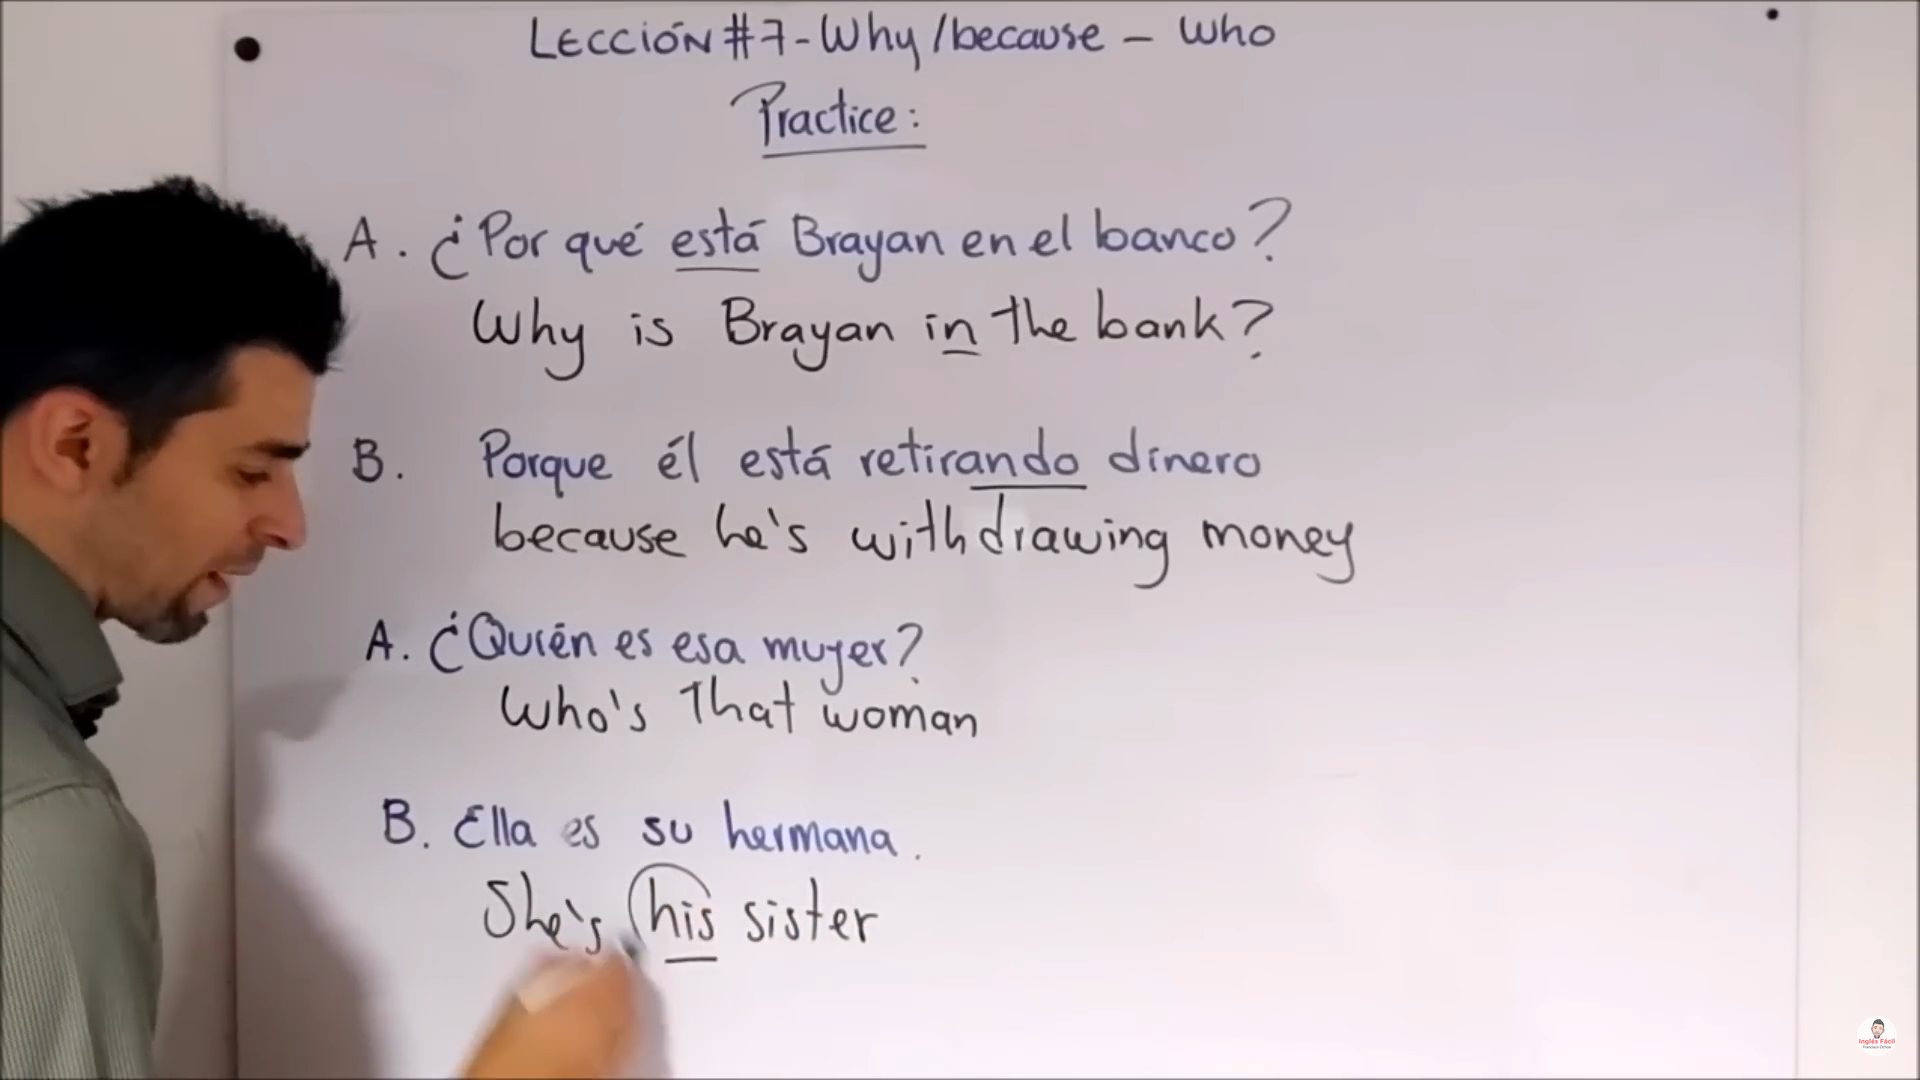 LECCIÓN #7 - Why / because - Who
Practice:
A. ¿Por qué está Brayan en el banco?
Why is Brayan in the bank?
B. Porque él está retirando dinero
because he's withdrawing money
A. ¿Quién es esa mujer?
Who's that woman
B. Ella es su hermana.
She's his sister
Inglés Fácil
Francisco Ochoa